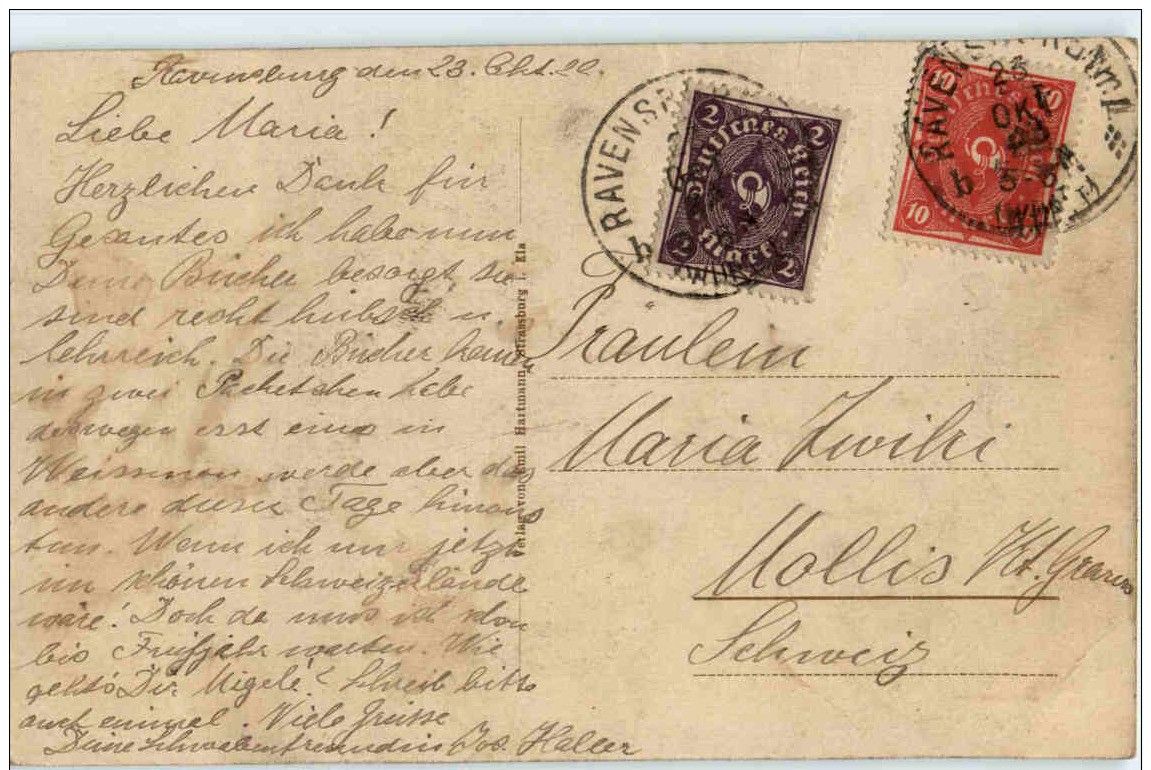 Ravensburg den 23. Okt. 22.
Liebe Maria!
Herzlichen Dank für
Gesantes ich habe nun
Deine Bücher besorgt, sie
sind recht hübsch u.
lehrreich. Die Bücher kamen
in zwei Packetchen
deswegen erst eins in
werde aber das
andere dieser Tage hinaus
tun. Wenn ich nur jetzt
im schönen Schweizerlande
wäre! Doch da muss ich schon
bis Frühjahr warten. Wie
geht's Dir Migele? Schreib bitte
auch einmal. Viele Grüsse
Deine Schwabenfreundin Jos. Haller
Verlag von Emil Hartmann, Strassburg i. Els
RAVENSB
b (WÜRTT
2 2
Deutsches Reich
2 Mark 2
RAVENSBURG
23
OKT
22
5-6
b (WÜRTT)
10 10
Deutsches Reich
10
Fräulein
Maria Zwiki
Mollis Kt. Glarus
Schweiz